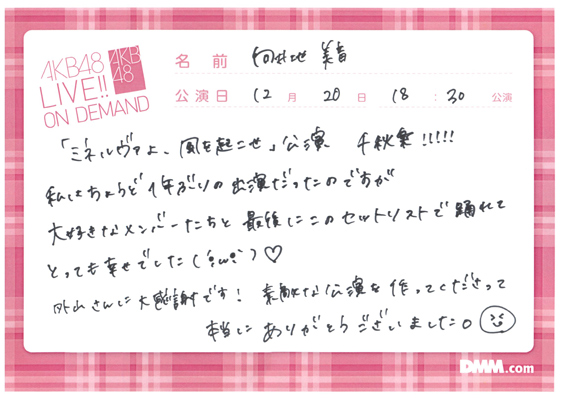 AKB48
LIVE!!
ON DEMAND
AKB
48
名前 向井地 美音
公演日 12月 20日 18:30 公演
「ミネルヴァよ、風を起こせ」公演 千秋楽!!!!!
私はちょうど1年ぶりの出演だったのですが
大好きなメンバーたちと最後にこのセットリストで踊れて
とっても幸せでした(;ω;)♡
外山さんに大感謝です! 素敵な公演を作ってくださって
本当にありがとうございました。
DMM.com